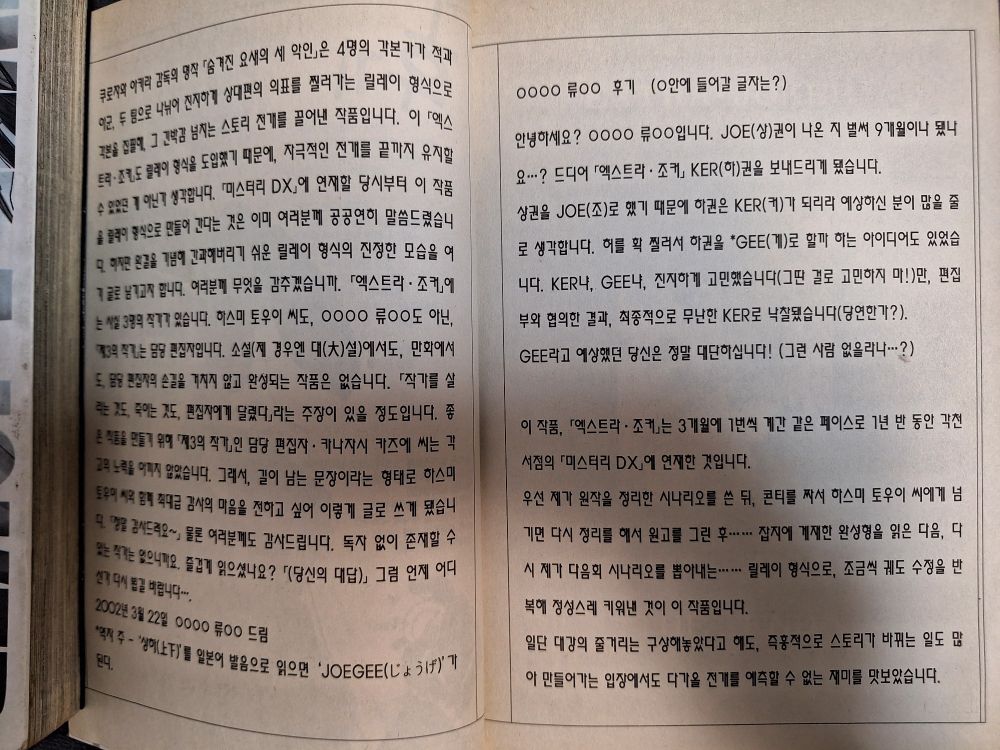 OOOO 류OO 후기 (O안에 들어갈 글자는?)
안녕하세요? OOOO 류OO입니다. JOE(상)권이 나온 지 벌써 9개월이나 됐나
요…? 드디어 「엑스트라·조커」 KER(하)권을 보내드리게 됐습니다.
상권을 JOE(조)로 했기 때문에 하권은 KER(커)가 되리라 예상하신 분이 많을 줄
로 생각합니다. 허를 확 찔러서 하권을 *GEE(게)로 할까 하는 아이디어도 있었습
니다. KER냐, GEE냐, 진지하게 고민했습니다(그딴 걸로 고민하지 마!)만, 편집
부와 협의한 결과, 최종적으로 무난한 KER로 낙찰됐습니다(당연한가?).
GEE라고 예상했던 당신은 정말 대단하십니다! (그런 사람 없을라나…?)
이 작품, 「엑스트라·조커」는 3개월에 1번씩 계간 같은 페이스로 1년 반 동안 각천
서점의 「미스터리 DX」에 연재한 것입니다.
우선 제가 원작을 정리한 시나리오를 쓴 뒤, 콘티를 짜서 하스미 토우이 씨에게 넘
기면 다시 정리를 해서 원고를 그린 후…… 잡지에 게재한 완성형을 읽은 다음, 다
시 제가 다음회 시나리오를 뽑아내는…… 릴레이 형식으로, 조금씩 궤도 수정을 반
복해 정성스레 키워낸 것이 이 작품입니다.
일단 대강의 줄거리는 구상해놓았다고 해도, 즉흥적으로 스토리가 바뀌는 일도 많
아 만들어가는 입장에서도 다가올 전개를 예측할 수 없는 재미를 맛보았습니다.
쿠로자와 아키라 감독의 명작 「숨겨진 요새의 세 악인」은 4명의 각본가가 적과
아군, 두 팀으로 나뉘어 진지하게 상대편의 의표를 찔러가는 릴레이 형식으로
각본을 집필해, 그 긴박감 넘치는 스토리 전개를 끌어낸 작품입니다. 이 「엑스
트라·조커」도 릴레이 형식을 도입했기 때문에, 자극적인 전개를 끝까지 유지할
수 있었던 게 아닌가 생각합니다. 「미스터리 DX」에 연재할 당시부터 이 작품
을 릴레이 형식으로 만들어 간다는 것은 이미 여러분께 공공연히 말씀드렸습니
다. 하지만 완결을 기념해 간과해버리기 쉬운 릴레이 형식의 진정한 모습을 여
기 글로 남기고자 합니다. 여러분께 무엇을 감추겠습니까. 「엑스트라·조커」에
는 사실 3명의 작가가 있습니다. 하스미 토우이 씨도, OOOO 류OO도 아닌,
「제3의 작가」는 담당 편집자입니다. 소설(제 경우엔 대(大)설)에서도, 만화에서
도, 담당 편집자의 손길을 거치지 않고 완성되는 작품은 없습니다. 「작가를 살
리는 것도, 죽이는 것도, 편집자에게 달렸다」라는 주장이 있을 정도입니다. 좋
은 작품을 만들기 위해 「제3의 작가」인 담당 편집자·카나자시 카즈에 씨는 각
고의 노력을 아끼지 않았습니다. 그래서, 길이 남는 문장이라는 형태로 하스미
토우이 씨와 함께 최대급 감사의 마음을 전하고 싶어 이렇게 글로 쓰게 됐습니
다. 「정말 감사드려요~」 물론 여러분께도 감사드립니다. 독자 없이 존재할 수
있는 작가는 없으니까요. 즐겁게 읽으셨나요? 「(당신의 대답)」 그럼 언제 어디
선가 다시 뵙길 바랍니다….
2002년 3월 22일 OOOO 류OO 드림
*역자 주 - '상하(上下)'를 일본어 발음으로 읽으면 'JOEGEE(じょうげ)'가
된다.